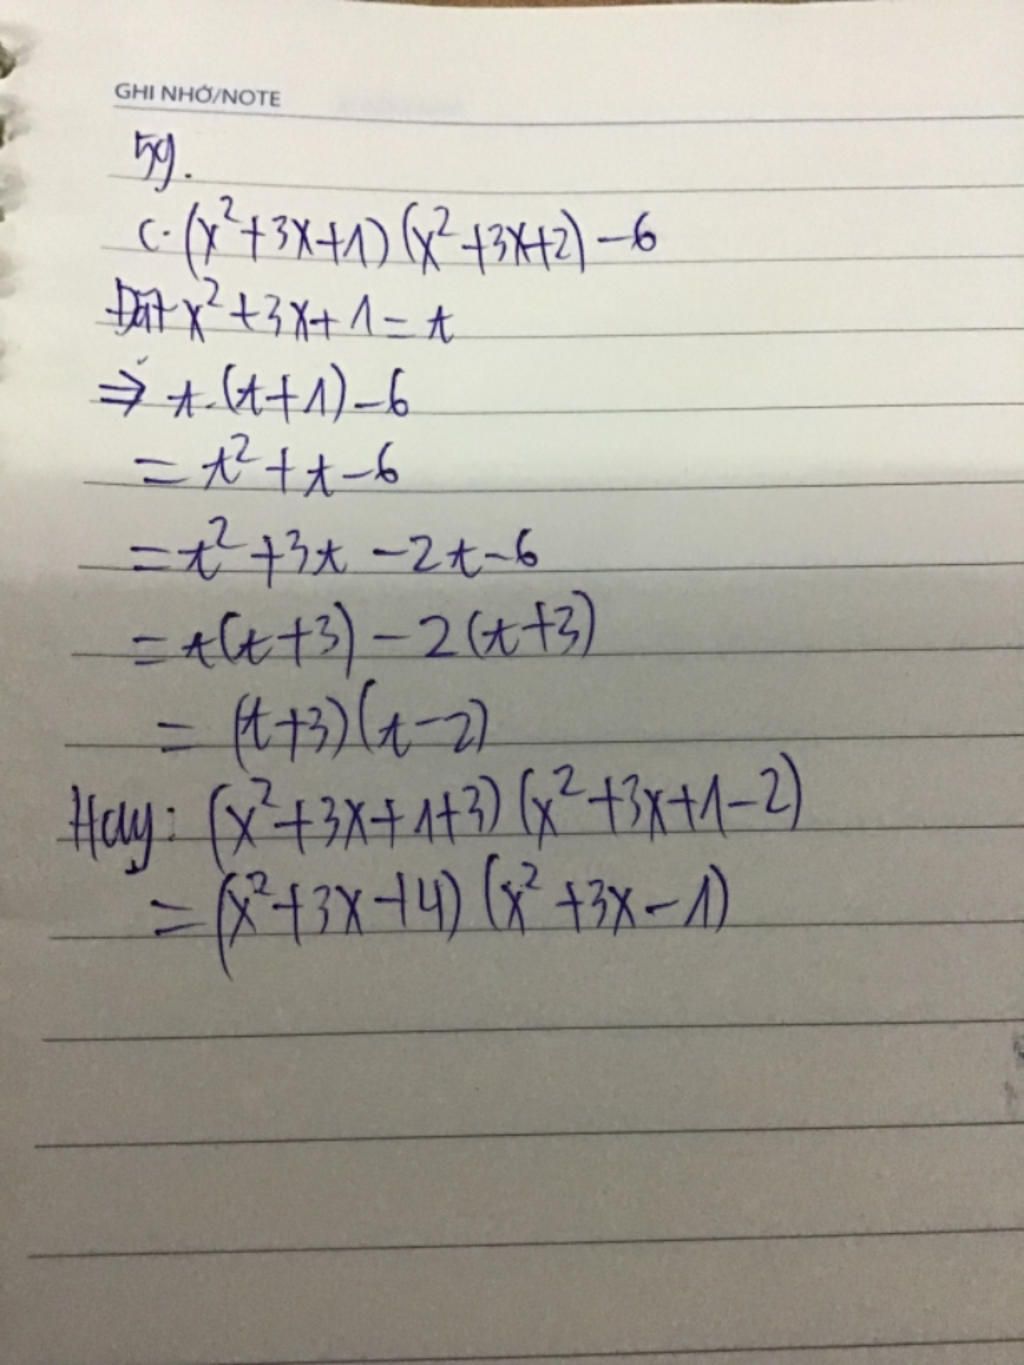 GHI NHỚ/NOTE
59.
c. (x²+3x+1)(x²+3x+2)-6
Đặt x²+3x+1=t
⇒ t.(t+1)-6
=t²+t-6
=t²+3t-2t-6
=t(t+3)-2(t+3)
=(t+3)(t-2)
Hay: (x²+3x+1+3)(x²+3x+1-2)
=(x²+3x+4)(x²+3x-1)